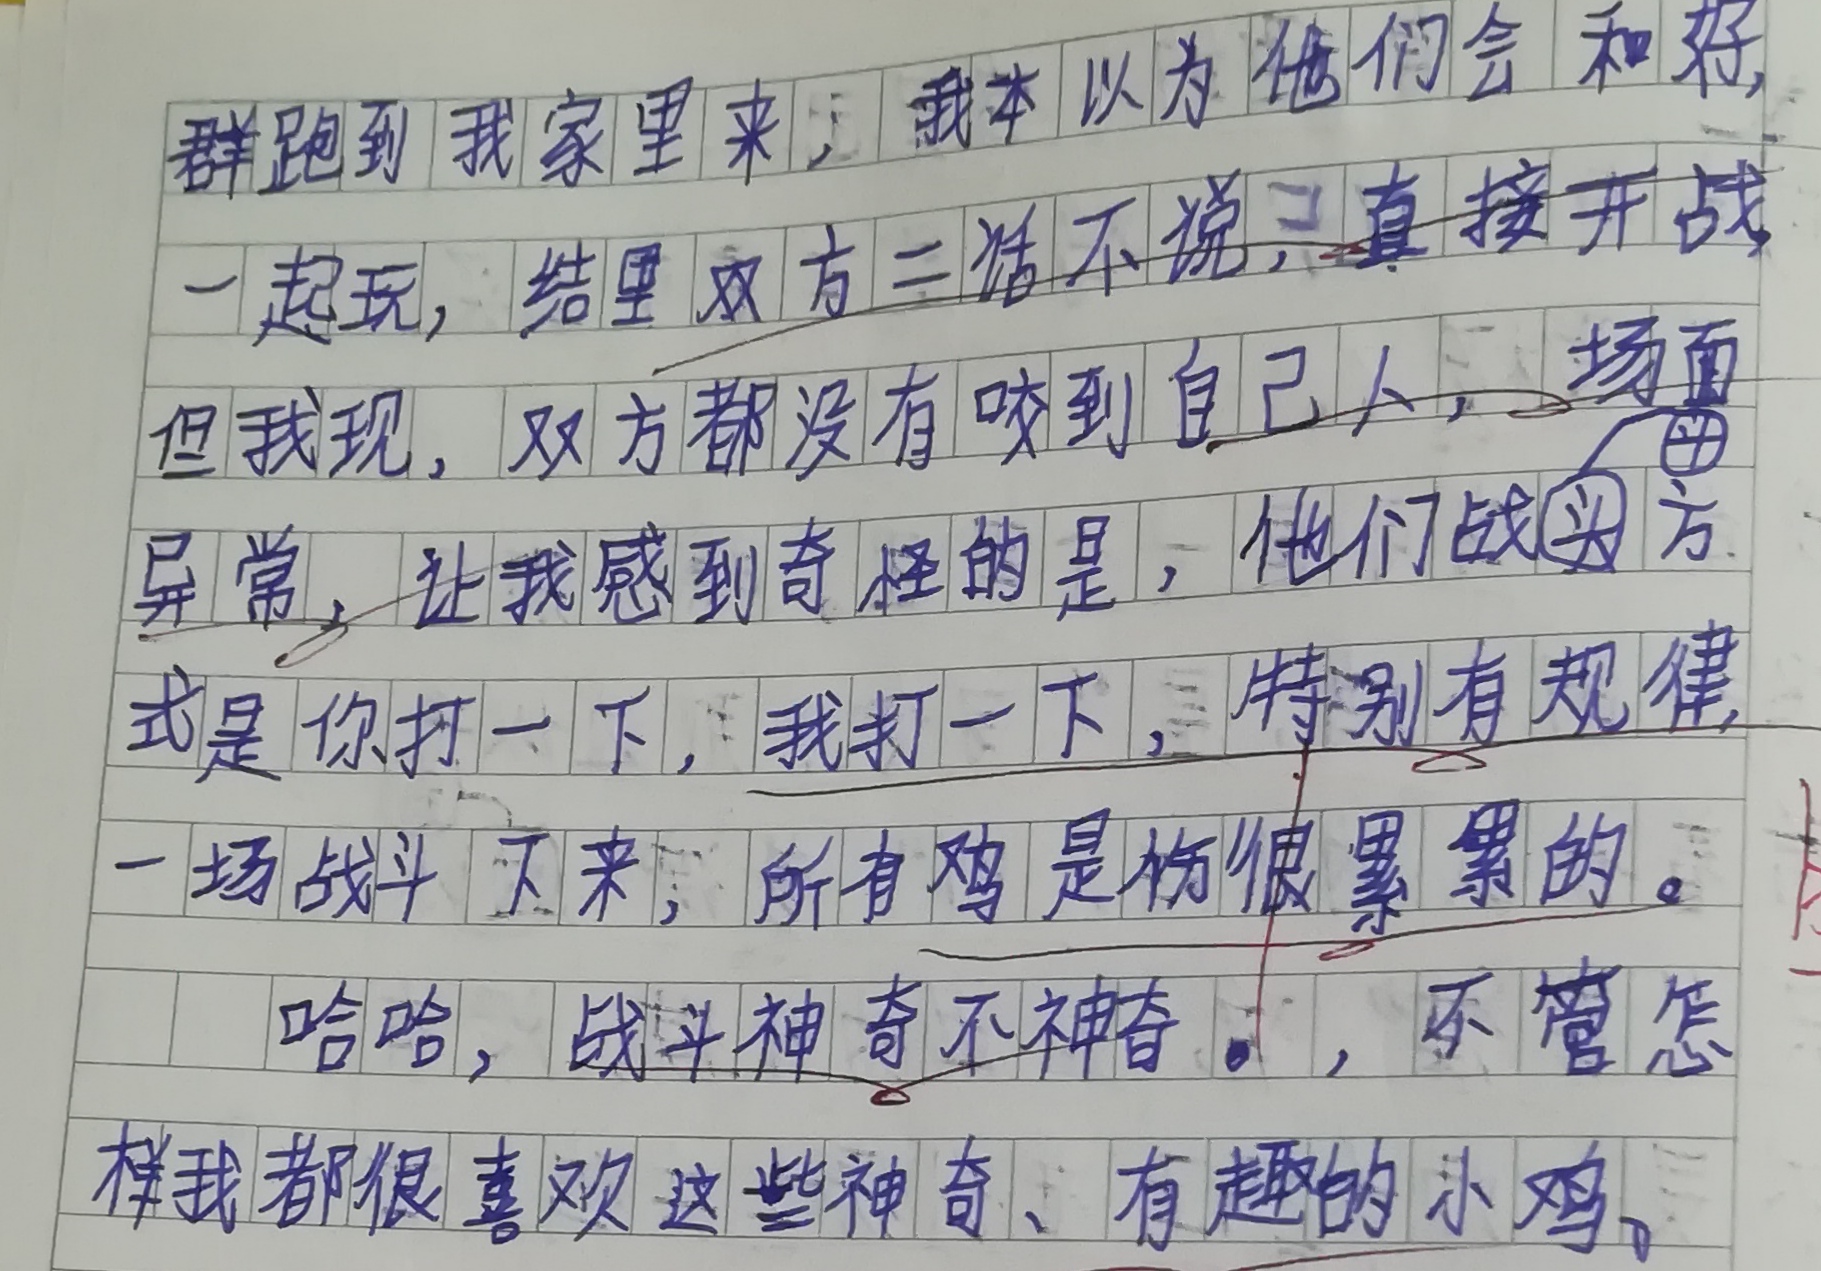 群跑到我家里来，我本以为他们会和好，
一起玩，结里双方二话不说，直接开战，
但我现，双方都没有咬到自己人，场面
异常，让我感到奇怪的是，他们战头方
式是你打一下，我打一下，特别有规律，
一场战斗下来，所有鸡是伤很累累的。
哈哈，战斗神奇不神奇。，不管怎
样我都很喜欢这些神奇、有趣的小鸡、